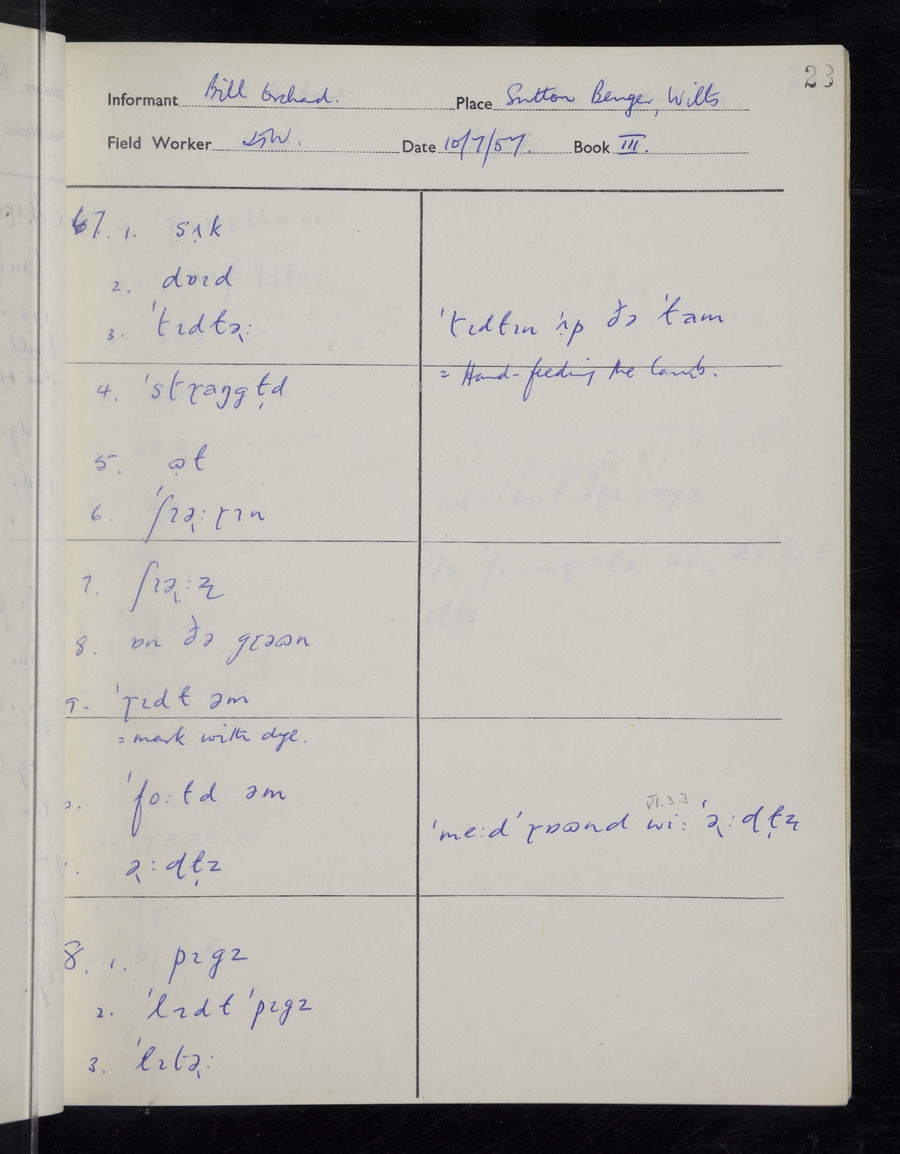 23
Informant Bill Orchard. Place Sutton Benger, Wilts
Field Worker Date 10/7/57. Book III.
67. 1. sʌk
2. dɒɪd
3. ˈtɪdɫə̢:
ˈtɪdɫɪn ˈʌp ðə ˈɫam
= Hand-feeding the lamb.
4. ˈstɽaŋgɫ̩d
5.
6. ˈʃɪə̢:ɽɪn
7. ʃɪə̢:ʐ
8. ɒn ðə gɽəʊn
9. ˈɽɪdɫ əm
= mark with dye.
ˈfo:ɫd əm
ˈme:d ˈɽɒʊnd wi: ˈə̢:ɖɫ̩z
VI.3.3
ə̢:ɖɫ̩z
8. 1. pɪgz
2. ˈlɪdɫ ˈpɪgz
3. ˈlɪtə̢: